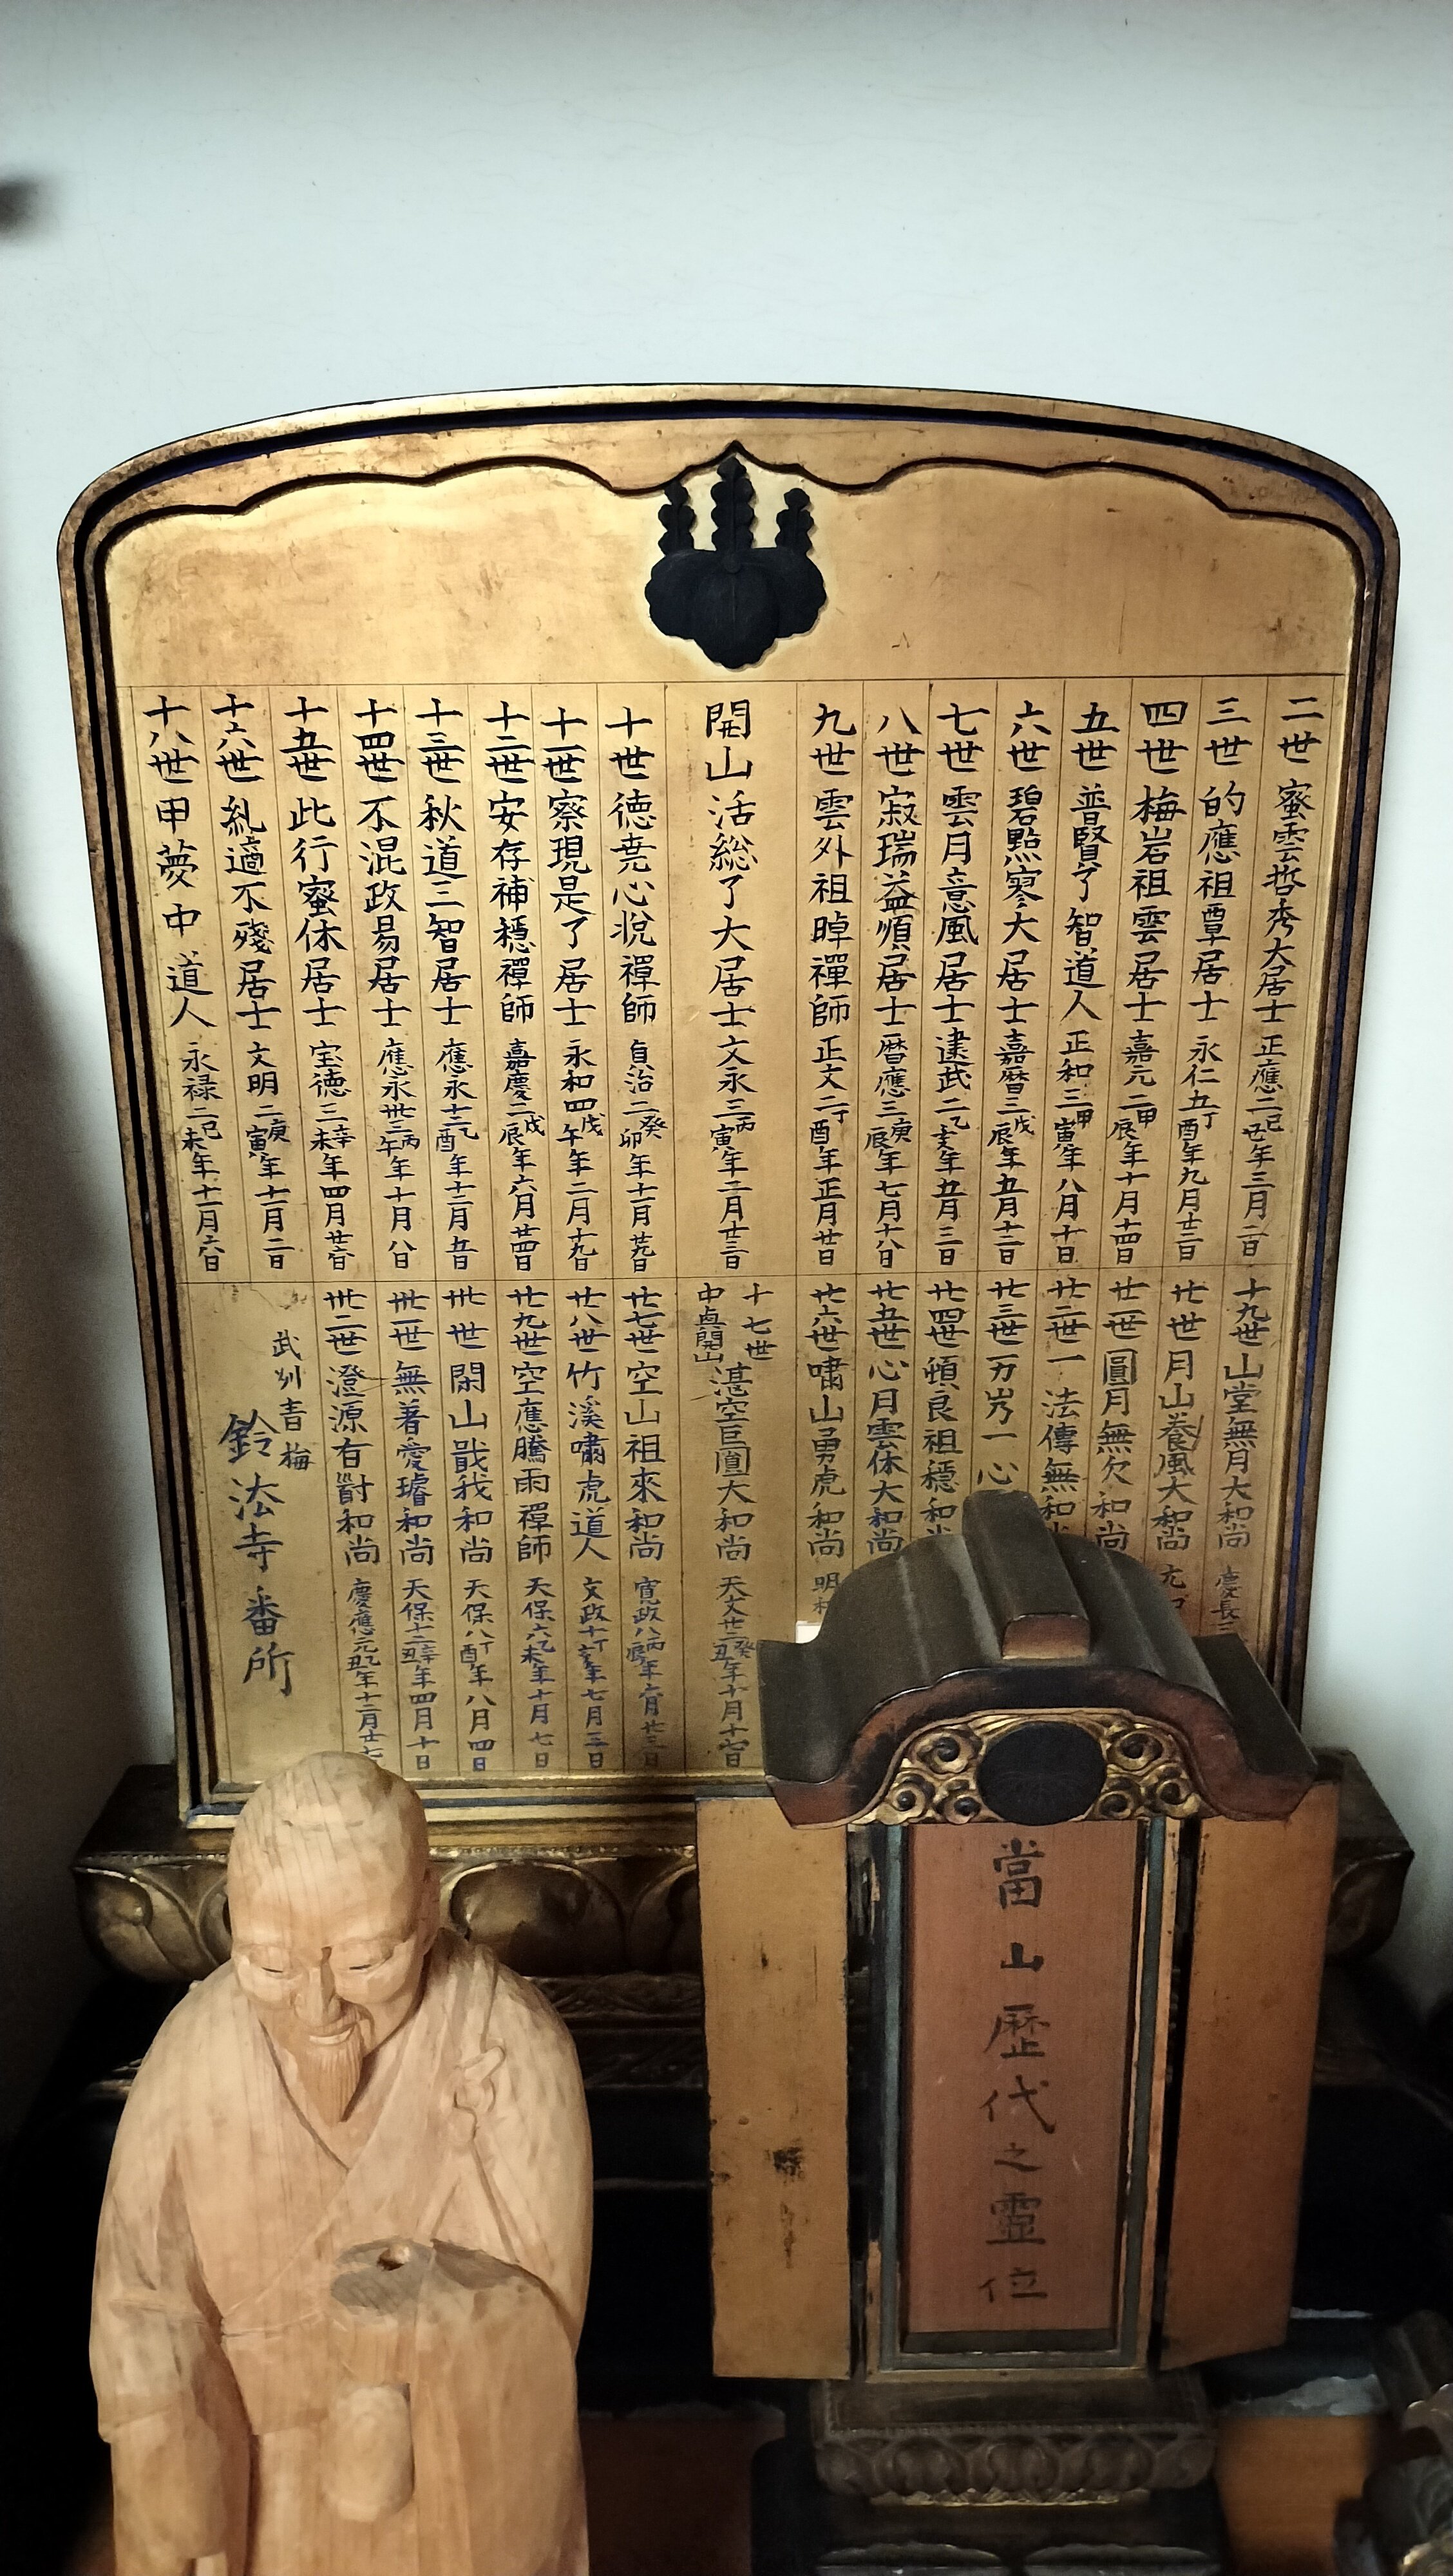 二世 蜜雲哲秀大居士 正應二己丑年三月二日
三世 的應祖覃居士 永仁五丁酉年九月廿二日
四世 梅岩祖雲居士 嘉元二甲辰年十月十四日
五世 普賢了智道人 正和三甲寅年八月十日
六世 碧點寥大居士 嘉暦三戊辰年五月十二日
七世 雲月意風居士 建武二乙亥年五月三日
八世 寂瑞益順居士 暦應三庚辰年七月十八日
九世 雲外祖晫禪師 正文二丁酉年正月廿日
開山 活総了大居士 文永三丙寅年二月廿三日
十世 德尭心悦禪師 貞治二癸卯年十一月廿九日
十一世 察現是了居士 永和四戊午年二月十九日
十二世 安存補穏禪師 嘉慶二戊辰年六月廿四日
十三世 秋道三智居士 應永十二乙酉年十二月五日
十四世 不混政易居士 應永卅三丙午年十月八日
十五世 此行蜜休居士 宝德三辛未年四月廿六日
十六世 糺適不殘居士 文明二庚寅年十一月二日
十八世 甲夢中道人 永禄二己未年十二月六日
十九世 山堂無月大和尚 慶長三
廿世 月山養風大和尚
廿一世 圓月無欠和尚
廿二世 一法傳無和尚
廿三世 万岁一心
廿四世 頓良祖穏和尚
廿五世 心月雲休大和尚
廿六世 嘯山勇虎和尚 明
十七世
中眞開山 湛空巨圓大和尚 天文廿二癸丑年十月十七日
廿七世 空山祖來和尚 寛政八丙辰年六月廿三日
廿八世 竹溪嘯虎道人 文政十丁亥年七月三日
廿九世 空應騰雨禪師 天保六乙未年十月七日
卅世 閑山戢我和尚 天保八丁酉年八月四日
卅一世 無著愛璿和尚 天保十二辛丑年四月十日
卅二世 澄源有對和尚 慶應元乙丑年十二月廿七
武州青梅
鈴法寺番所
當山歷代之靈位